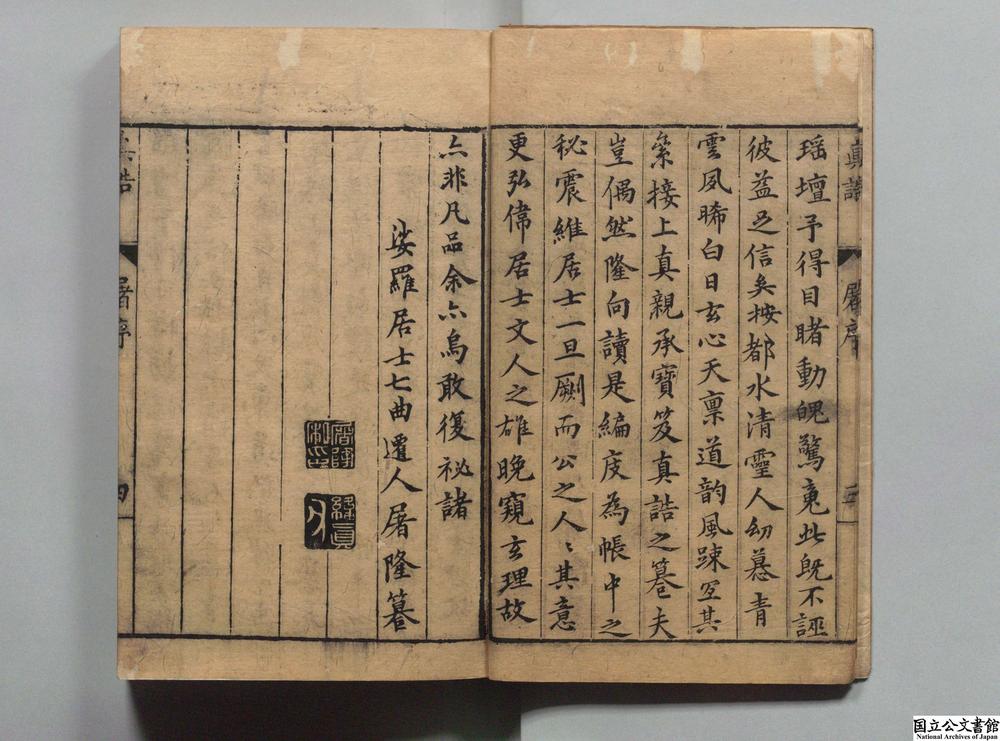 真誥
屠序
三
瑶壇予得目睹動魄驚䰟此既不誣
彼益足信矣按都水清靈人幼慕青
雲夙晞白日玄心天禀道韵風踈宜其
絫接上真親承寶笈真誥之篹夫
豈偶然隆向讀是編庋為帳中之
秘震維居士一旦劂而公之人〻其意
更弘偉居士文人之雄晚窺玄理故
亦非凡品余亦烏敢復祕諸
娑羅居士七曲遷人屠隆篹
屠隆
緯真
真誥
屠序
四
国立公文書館
National Archives of Japan